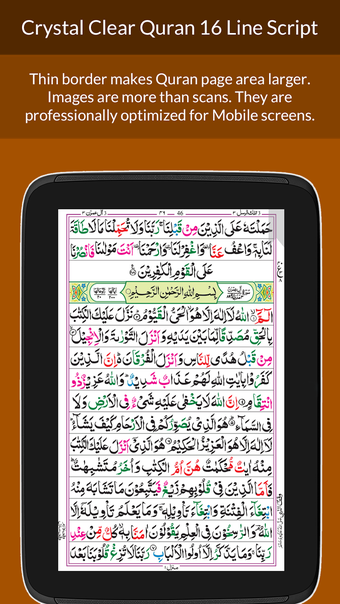 Crystal Clear Quran 16 Line Script
Thin border makes Quran page area larger.
Images are more than scans. They are
professionally optimized for Mobile screens.
حَمَلْتَهٗ عَلَى الَّذِيْنَ مِنْ قَبْلِنَا ۚ رَبَّنَا وَلَا تُحَمِّلْنَا مَا لَا طَاقَةَ
لَنَا بِهٖ ۚ وَاعْفُ عَنَّا ۥ وَاغْفِرْ لَنَا ۥ وَارْحَمْنَا ۥ اَنْتَ مَوْلٰىنَا فَانْصُرْنَا
عَلَى الْقَوْمِ الْكٰفِرِيْنَ
بِسْمِ اللّٰهِ الرَّحْمٰنِ الرَّحِيْمِ
الٓمّٓ اللّٰهُ لَاۤ اِلٰهَ اِلَّا هُوَ الْحَيُّ الْقَيُّوْمُ نَزَّلَ عَلَيْكَ الْكِتٰبَ
بِالْحَقِّ مُصَدِّقًا لِّمَا بَيْنَ يَدَيْهِ وَاَنْزَلَ التَّوْرٰىةَ وَالْاِنْجِيْلَ
مِنْ قَبْلُ هُدًى لِّلنَّاسِ وَاَنْزَلَ الْفُرْقَانَ اِنَّ الَّذِيْنَ
كَفَرُوْا بِاٰيٰتِ اللّٰهِ لَهُمْ عَذَابٌ شَدِيْدٌ وَاللّٰهُ عَزِيْزٌ ذُو
انْتِقَامٍ اِنَّ اللّٰهَ لَا يَخْفٰى عَلَيْهِ شَيْءٌ فِي الْاَرْضِ وَلَا
فِي السَّمَآءِ هُوَ الَّذِيْ يُصَوِّرُكُمْ فِي الْاَرْحَامِ كَيْفَ يَشَآءُ
لَاۤ اِلٰهَ اِلَّا هُوَ الْعَزِيْزُ الْحَكِيْمُ هُوَ الَّذِيْۤ اَنْزَلَ عَلَيْكَ الْكِتٰبَ
مِنْهُ اٰيٰتٌ مُّحْكَمٰتٌ هُنَّ اُمُّ الْكِتٰبِ وَاُخَرُ مُتَشٰبِهٰتٌ
فَاَمَّا الَّذِيْنَ فِيْ قُلُوْبِهِمْ زَيْغٌ فَيَتَّبِعُوْنَ مَا تَشَابَهَ مِنْهُ
ابْتِغَآءَ الْفِتْنَةِ وَابْتِغَآءَ تَاْوِيْلِهٖ وَمَا يَعْلَمُ تَاْوِيْلَهٗۤ اِلَّا
اللّٰهُ وَالرّٰسِخُوْنَ فِي الْعِلْمِ يَقُوْلُوْنَ اٰمَنَّا بِهٖ كُلٌّ مِّنْ عِنْدِ
رَبِّنَا وَمَا يَذَّكَّرُ اِلَّاۤ اُولُوا الْاَلْبَابِ رَبَّنَا لَا تُزِغْ قُلُوْبَنَا بَعْدَ